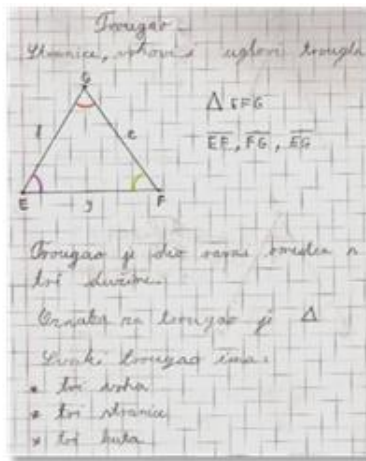 Trougao
Stranice, vrhovi i uglovi trougla
G
f
e
E
g
F
Δ EFG
EF, FG, EG
Trougao je dio ravni omeđen s
tri dužine.
Oznaka za trougao je Δ
Svaki trougao ima:
* tri vrha
* tri stranice
* tri kuta